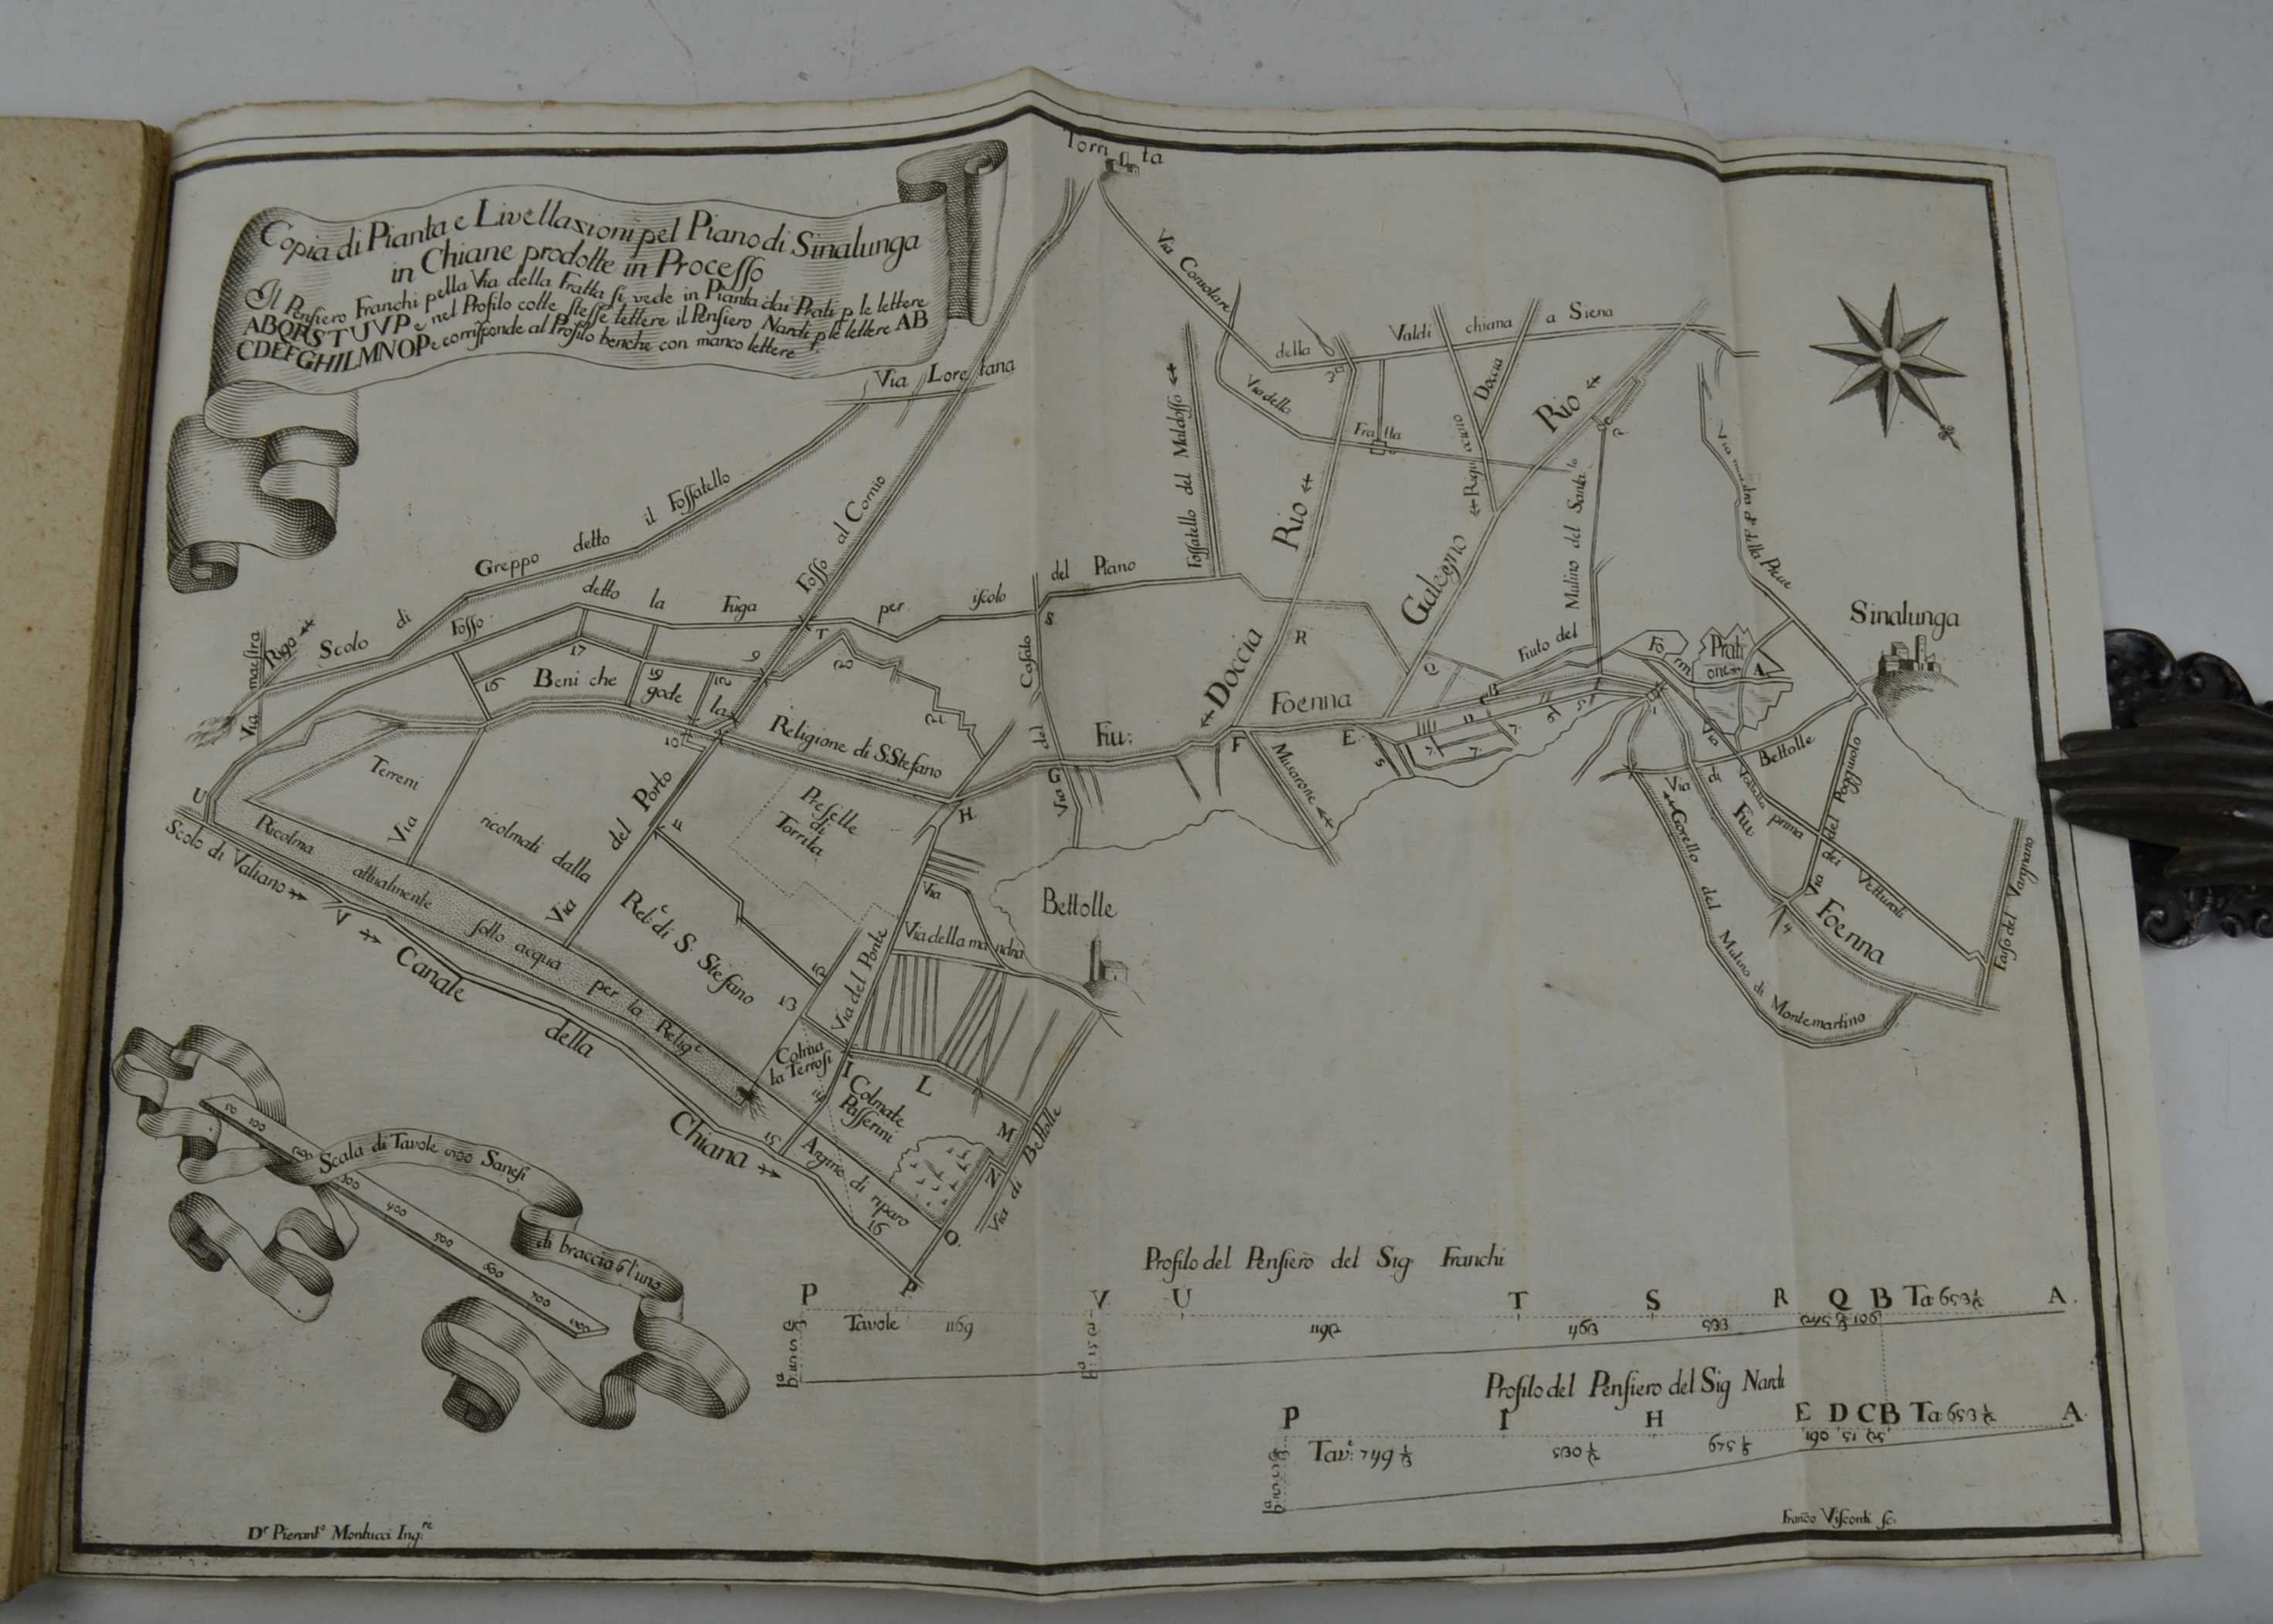 Copia di Pianta e Livellazioni pel Piano di Sinalunga
in Chiane prodotte in Processo
Il Pensiero Franchi pella Via della Fratta si vede in Pianta dai Prati p le lettere
ABQRSTUVP e nel Profilo colle stesse lettere il Pensiero Nardi p le lettere AB
CDEFGHILMNOP e corrisponde al Profilo benche con manco lettere
Torrita
Via Lorettana
Via Consolare
della Valdichiana a Siena
Via della
Fratta
Fossatello del Maldosso
Rio
Doccia
Rigucciaio
Rio
Galegno
Fiuto del Mulino del Santo
Via
della Pieve
Sinalunga
Prati
A
Scolo di Greppo detto il Fossatello
Fosso al Cornio
Fosso detto la Fuga per iscolo del Piano
Via maestra
Rigo
Beni che gode la Religione di S. Stefano
16
17
19
9
10
11
13
T
S
R
Q
U
V
H
G
F
E
D
Via del Casato
Doccia
Fiu: Foenna
Musarone
Via di Bettolle
Via del Poggiuolo
Via dei Vetturali
prima
Fiu Foenna
4
Gorello del Mulino di Montemartino
Fosso del Vargnano
Terreni ricolmati dalla Rel.e di S. Stefano
Via
Via del Porto
Presselle
di
Torrita
Bettolle
Via
Via della mandria
Via del Ponte
Ricolma attualmente sotto acqua per la Relig.e
Scolo di Valiano
Canale della Chiana
Colma
la Terrosi
I
L
M
N
O
P
Colmate
Passerini
15
16
Argine di riparo
Via di Bettolle
50 100 200 300 400 500 600 700 800
Scala di Tavole 800 Sanesi
di braccia 6 l'uno
Profilo del Pensiero del Sig. Franchi
P V U T S R Q B Ta 653½ A.
Tavole 1169 1192 463 533
Profilo del Pensiero del Sig Nardi
P I H E D C B Ta 653½ A.
Tav.e 749⅓ 530½ 675
Dr Pierant.o Montucci Ing.re
Franco Visconti Sc.